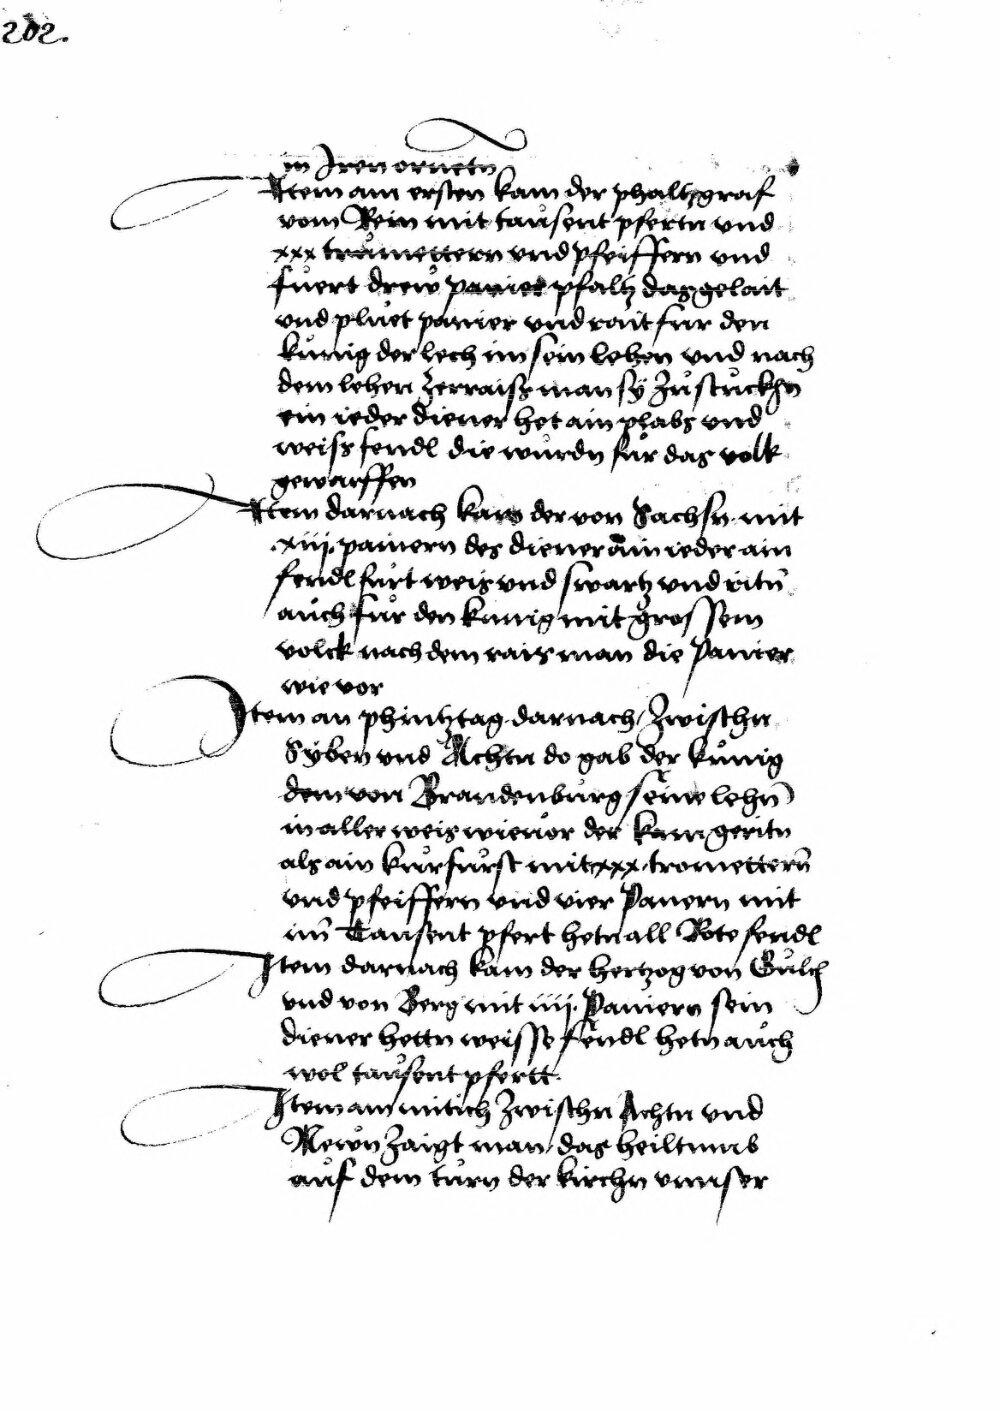 202.
in Iren ornetn
Item am ersten kam der phaltzgraf
vom Rein mit taůsent pfertn vnd
xxx trůmettern vnd pfeiffern vnd
fůert drew panier pfaltz das gelait
vnd plůet panier vnd rait fur den
kůnig der lech im sein lehen vnd nach
dem lehen Zerraiss man sÿ Zů stůckhn
ein ieder diener het ain plabs vnd
weiss fendl die wůrdn fůr das volk
geworffen
Item darnach kam der von Sachsn mit
.xiiij. paniern des diener ain ieder ain
fendl fůrt weis vnd swartz vnd ritn̄
aůch fůr den kunig mit grossem
volck nach dem rais man die Panier
wie vor
Item an phintztag darnach Zwischn
Sÿben vnd Achtn do gab der kůnig
dem von Brandenbůrg seine lehn̄
in aller weis wie vor der kam geritn
als ain kůrfůrst mit xxx. tromettern̄
vnd pfeiffern vnd vier Panern mit
im̄ Taůsent pfert hetn all Rote fendl
Item darnach kam der hertzog von Gůlch
vnd von Berg mit iiij. Paniern sein
diener hettn weisse fendl hetn aůch
wol taůsent pfertt.
Item am mitich Zwischn Achtn vnd
Newn Zaigt man das heiltumb
aůf dem tůrn der kirchn vnnser